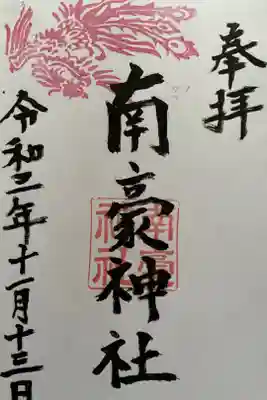 奉拝
南豪神社
令和二年十一月十三日